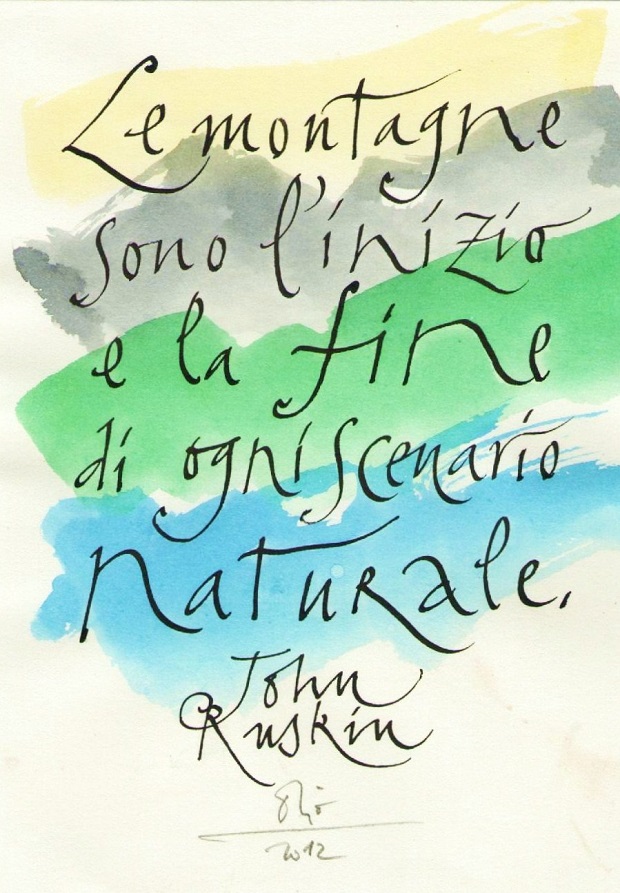 Le montagne
sono l'inizio
e la fine
di ogni scenario
naturale.
John
Ruskin
2012